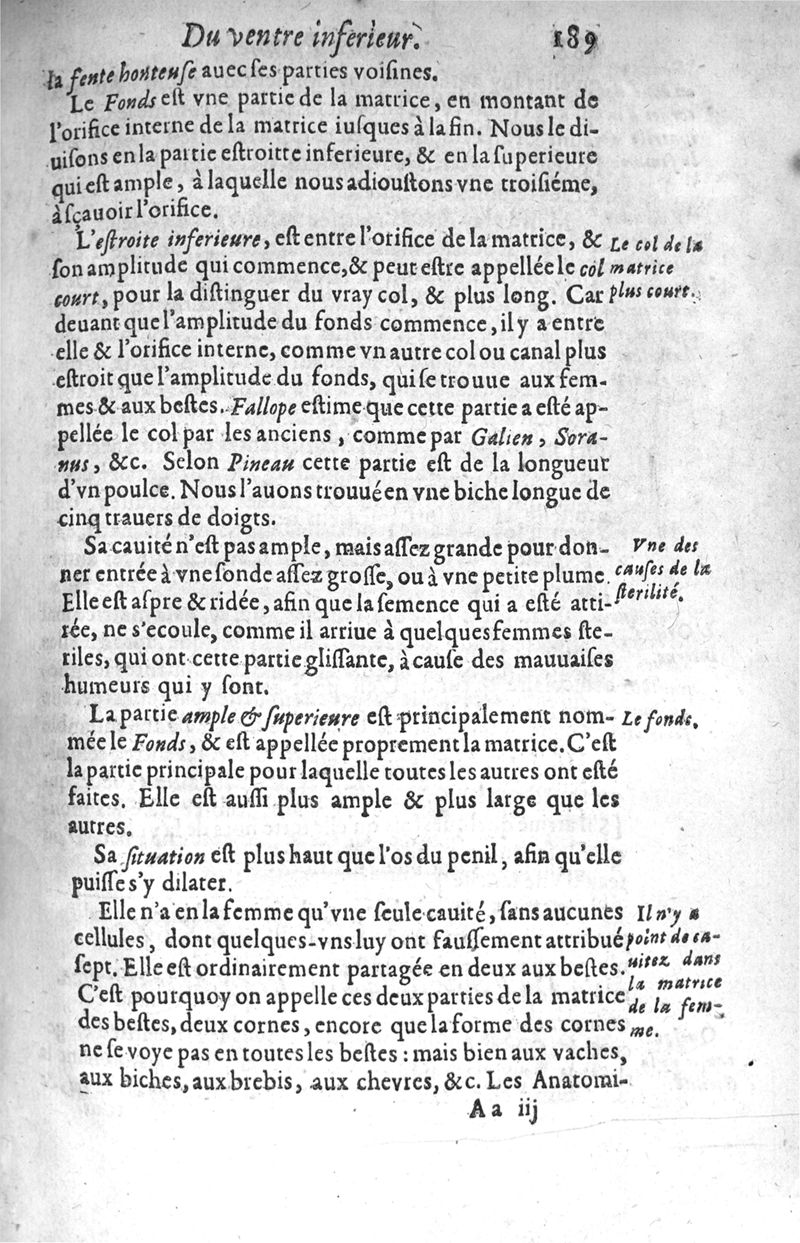 Du ventre inferieur. 189
la fente honteuse auec ses parties voisines.
Le Fonds est vne partie de la matrice, en montant de
l'orifice interne de la matrice iusques à la fin. Nous le di-
uisons en la partie estroitte inferieure, & en la superieure
qui est ample, à laquelle nous adioustons vne troisiéme,
à sçauoir l'orifice.
L'estroite inferieure, est entre l'orifice de la matrice, &
son amplitude qui commence, & peut estre appellée le col
court, pour la distinguer du vray col, & plus long. Car
Le col de la
matrice
plus court.
deuant que l'amplitude du fonds commence, il y a entre
elle & l'orifice interne, comme vn autre col ou canal plus
estroit que l'amplitude du fonds, qui se trouue aux fem-
mes & aux bestes. Fallope estime que cette partie a esté ap-
pellée le col par les anciens, comme par Galien, Sora-
nus, &c. Selon Pineau cette partie est de la longueur
d'vn poulce. Nous l'auons trouué en vne biche longue de
cinq trauers de doigts.
Sa cauité n'est pas ample, mais assez grande pour don-
ner entrée à vne sonde assez grosse, ou à vne petite plume.
Elle est aspre & ridée, afin que la semence qui a esté atti-
Vne des
causes de la
sterilité.
rée, ne s'ecoule, comme il arriue à quelques femmes ste-
riles, qui ont cette partie glissante, à cause des mauuaises
humeurs qui y sont.
La partie ample & superieure est principalement nom-
Le fonds.
mée le Fonds, & est appellée proprement la matrice. C'est
la partie principale pour laquelle toutes les autres ont esté
faites. Elle est aussi plus ample & plus large que les
autres.
Sa situation est plus haut que l'os du penil, afin qu'elle
puisse s'y dilater.
Elle n'a en la femme qu'vne seule cauité, sans aucunes
cellules, dont quelques-vns luy ont faussement attribué
sept. Elle est ordinairement partagée en deux aux bestes.
C'est pourquoy on appelle ces deux parties de la matrice
des bestes, deux cornes, encore que la forme des cornes
Il n'y a
point de ca-
uitez dans
la matrice
de la fem-
me.
ne se voye pas en toutes les bestes : mais bien aux vaches,
aux biches, aux brebis, aux chevres, &c. Les Anatomi-
Aa iij